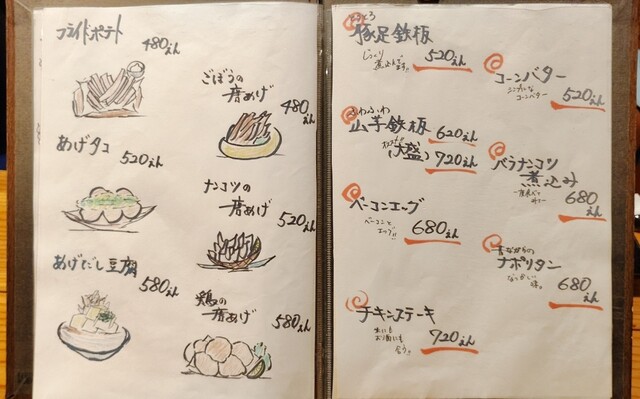 フライドポテト
480えん
あげタコ
520えん
あげだし豆腐
580えん
ごぼうの
唐あげ
480えん
ナンコツの
唐あげ
520えん
鶏の
唐あげ
580えん
とろとろ
豚足鉄板
じっくり
煮込んでます!!
520えん
ふわふわ
山芋鉄板 620えん
(大盛) 720えん
ベーコンエッグ
ベーコンと
エッグ!!
680えん
チキンステーキ
720えん
コーンバター
シンプルな
コーンバター
520えん
バラナンコツ
煮込み
680えん
昔ながらの
ナポリタン
なつかしい
味。
680えん